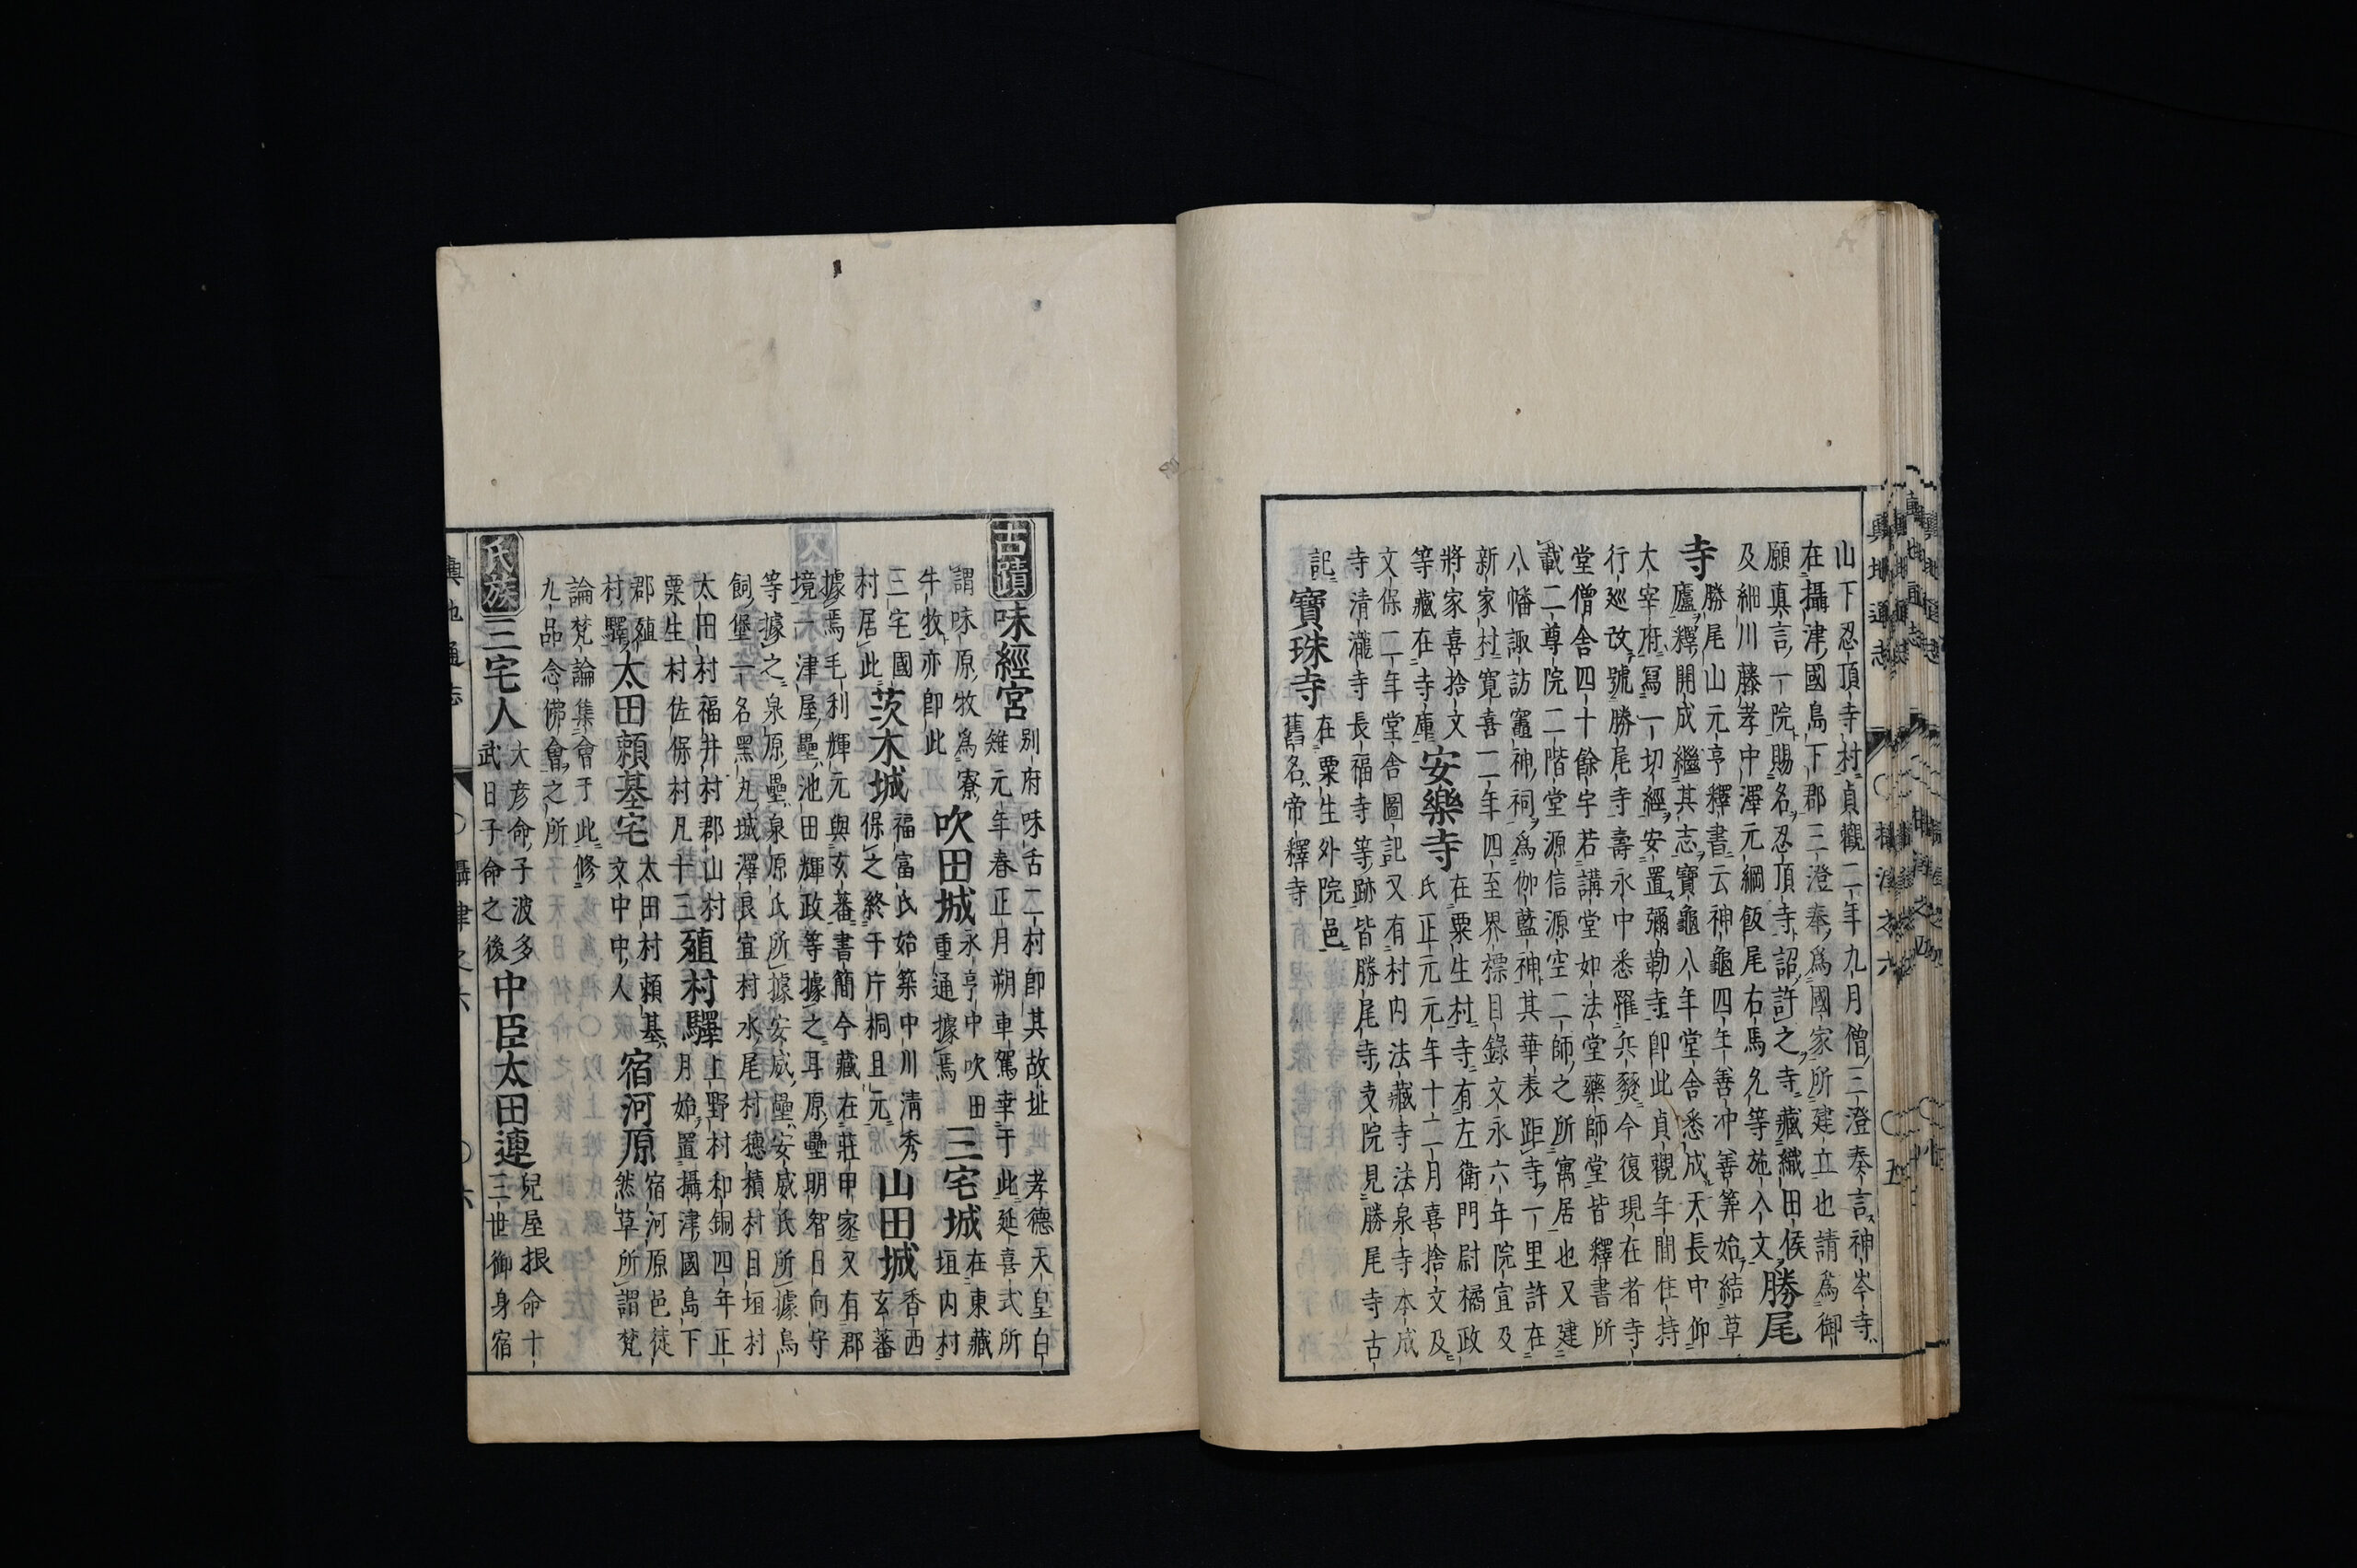 山下忍頂寺村貞觀二年九月僧三澄奏言神岑寺
在攝津國島下郡三澄奉爲國家所建立也請爲御
願眞言一院賜名忍頂寺詔許之寺藏織田侯
及細川藤孝中澤元綱飯尾右馬允等施入文
勝尾
寺
勝尾山元亨釋書云神龜四年善冲善筭始結草
廬釋開成繼其志寶龜八年堂舍悉成天長中仰
大宰府冩一切經安置彌勒寺即此貞觀年間住持
行廵改號勝尾寺壽永中悉罹兵燹今復現在者寺
堂僧舍四十餘宇若講堂如法堂藥師堂皆釋書所
載二尊院二階堂源信源空二師之所寓居也又建
八幡諏訪竈神祠爲伽藍神其華表距寺一里許在
新家村寛喜二年四至界標目錄文永六年院宣及
將家喜捨文
等藏在寺庫
安樂寺
在粟生村寺有左衛門尉橘政
氏正元元年十二月喜捨文及
文保二年堂舍圖記又有村内法藏寺法泉寺本成
寺清瀧寺長福寺等跡皆勝尾寺支院見勝尾寺古
記
寶珠寺
在粟生外院邑
舊名帝釋寺
輿地通志
攝津之六
五
古蹟
味經宮
別府味舌二村即其故址孝德天皇白
雉元年春正月朔車駕幸于此延喜式所
謂味原牧爲寮
牛牧亦即此
吹田城
永亨中吹田
重通據焉
三宅城
在東藏
垣内村
三宅國
村居此
茨木城
福富氏始築中川清秀
保之終于片桐且元
山田城
香西
玄蕃
據焉毛利輝元與玄蕃書簡今藏在莊甲家又有郡
境一津屋壘池田輝政等據之耳原壘明智日向守
等據之泉原壘泉原氏所據安威壘安威氏所據烏
飼堡一名黑丸城澤良宜村水尾村德積村日垣村
太田村福井村郡山村
粟生村佐保村凡十三
殖村驛
上野村和銅四年正
月始置攝津國島下
郡殖
村驛
太田頼基宅
太田村頼基
文中中人
宿河原
宿河原邑徒
然草所謂梵
論梵論集會于此修
九品念佛會之所
氏族
三宅人
大彦命子波多
武日子命之後
中臣太田連
兒屋根命十
三世御身宿
輿地通志
攝津之六
六